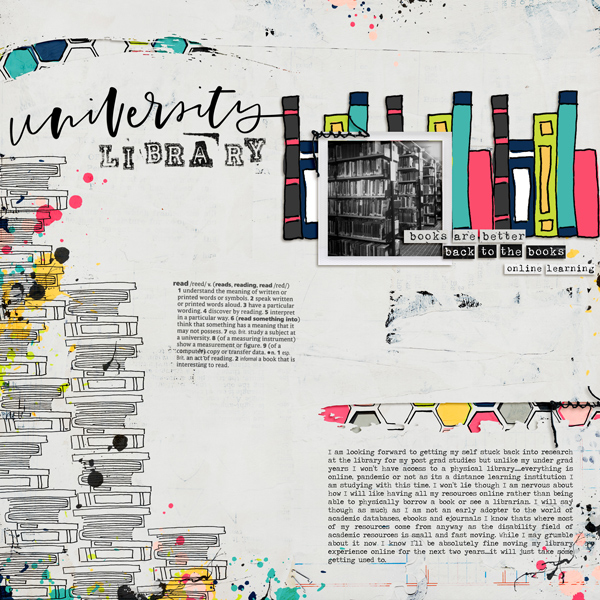 university
LIBRARY
books are better
back to the books
online learning
read /reed/ v. (reads, reading, read /red/)
1 understand the meaning of written or
printed words or symbols. 2 speak written
or printed words aloud. 3 have a particular
wording. 4 discover by reading. 5 interpret
in a particular way. 6 (read something into)
think that something has a meaning that it
may not possess. 7 esp. Brit. study a subject at
a university. 8 (of a measuring instrument)
show a measurement or figure. 9 (of a
computer) copy or transfer data. ●n. 1 esp.
Brit. an act of reading. 2 informal a book that is
interesting to read.
I am looking forward to getting my self stuck back into research
at the library for my post grad studies but unlike my under grad
years I won't have access to a physical library....everything is
online, pandemic or not as its a distance learning institution I
am studying with this time. I won't lie though I am nervous about
how I will like having all my resources online rather than being
able to physically borrow a book or see a librarian. I will say
though as much as I am not an early adopter to the world of
academic databases, ebooks and ejournals I know thats where most
of my resources come from anyway as the disability field of
academic resources is small and fast moving. While I may grumble
about it now I know I'll be absolutely fine moving my library
experience online for the next two years....it will just take some
getting used to.